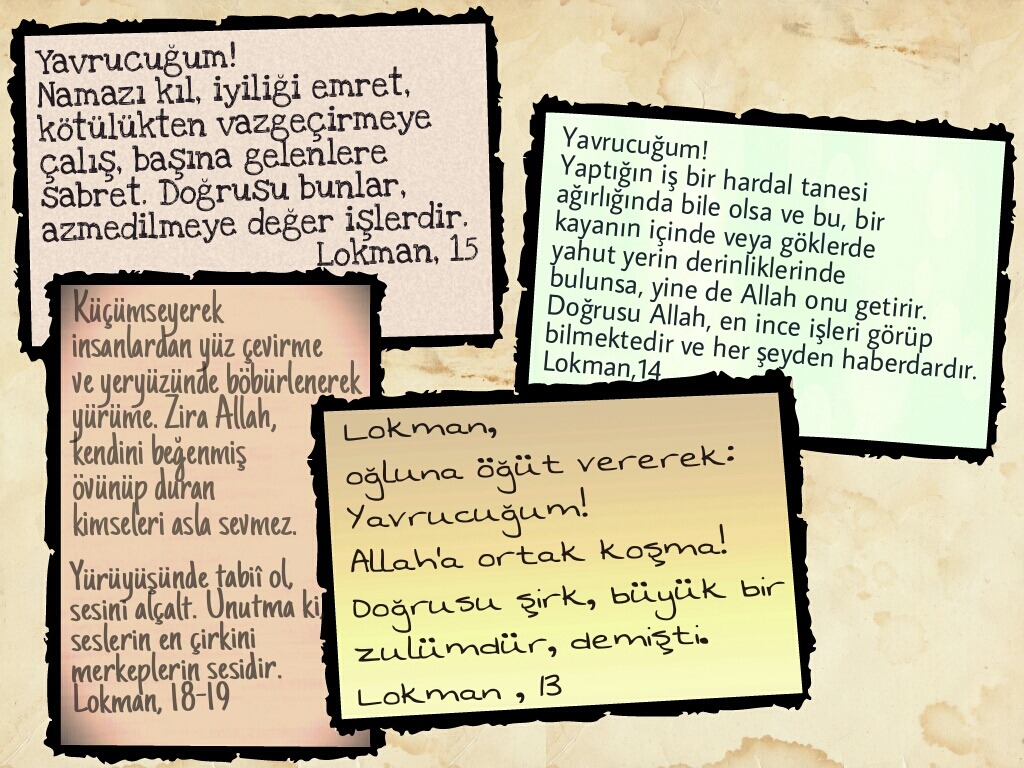 Yavrucuğum!
Namazı kıl, iyiliği emret,
kötülükten vazgeçirmeye
çalış, başına gelenlere
sabret. Doğrusu bunlar,
azmedilmeye değer işlerdir.
Lokman, 15
Yavrucuğum!
Yaptığın iş bir hardal tanesi
ağırlığında bile olsa ve bu, bir
kayanın içinde veya göklerde
yahut yerin derinliklerinde
bulunsa, yine de Allah onu getirir.
Doğrusu Allah, en ince işleri görüp
bilmektedir ve her şeyden haberdardır.
Lokman,14
Küçümseyerek
insanlardan yüz çevirme
ve yeryüzünde böbürlenerek
yürüme. Zira Allah,
kendini beğenmiş
övünüp duran
kimseleri asla sevmez.
Yürüyüşünde tabiî ol,
sesini alçalt. Unutma ki,
seslerin en çirkini
merkeplerin sesidir.
Lokman, 18-19
Lokman,
oğluna öğüt vererek:
Yavrucuğum!
Allah'a ortak koşma!
Doğrusu şirk, büyük bir
zulümdür, demişti.
Lokman , 13